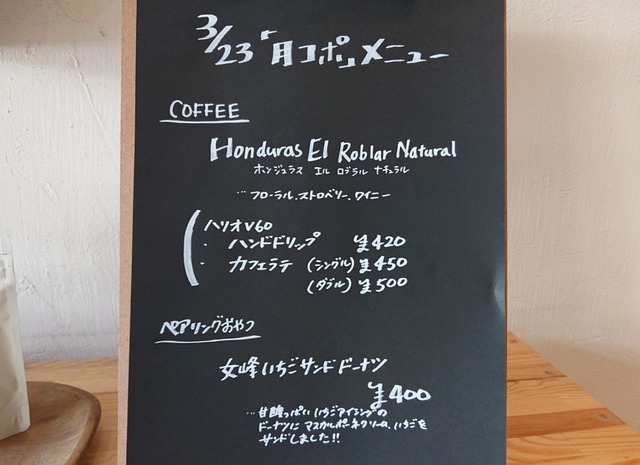 3/23「月コポ」メニュー
COFFEE
Honduras El Roblar Natural
ホンジュラス エル ロブラル ナチュラル
…フローラル、ストロベリー、ワイニー
ハリオV60
・ ハンドドリップ ¥420
・ カフェラテ (シングル) ¥450
(ダブル) ¥500
ペアリングおやつ
女峰いちごサンドドーナツ
¥400
…甘酸っぱいいちごアイシングの
ドーナツにマスカルポーネクリーム、いちごを
サンドしました!!